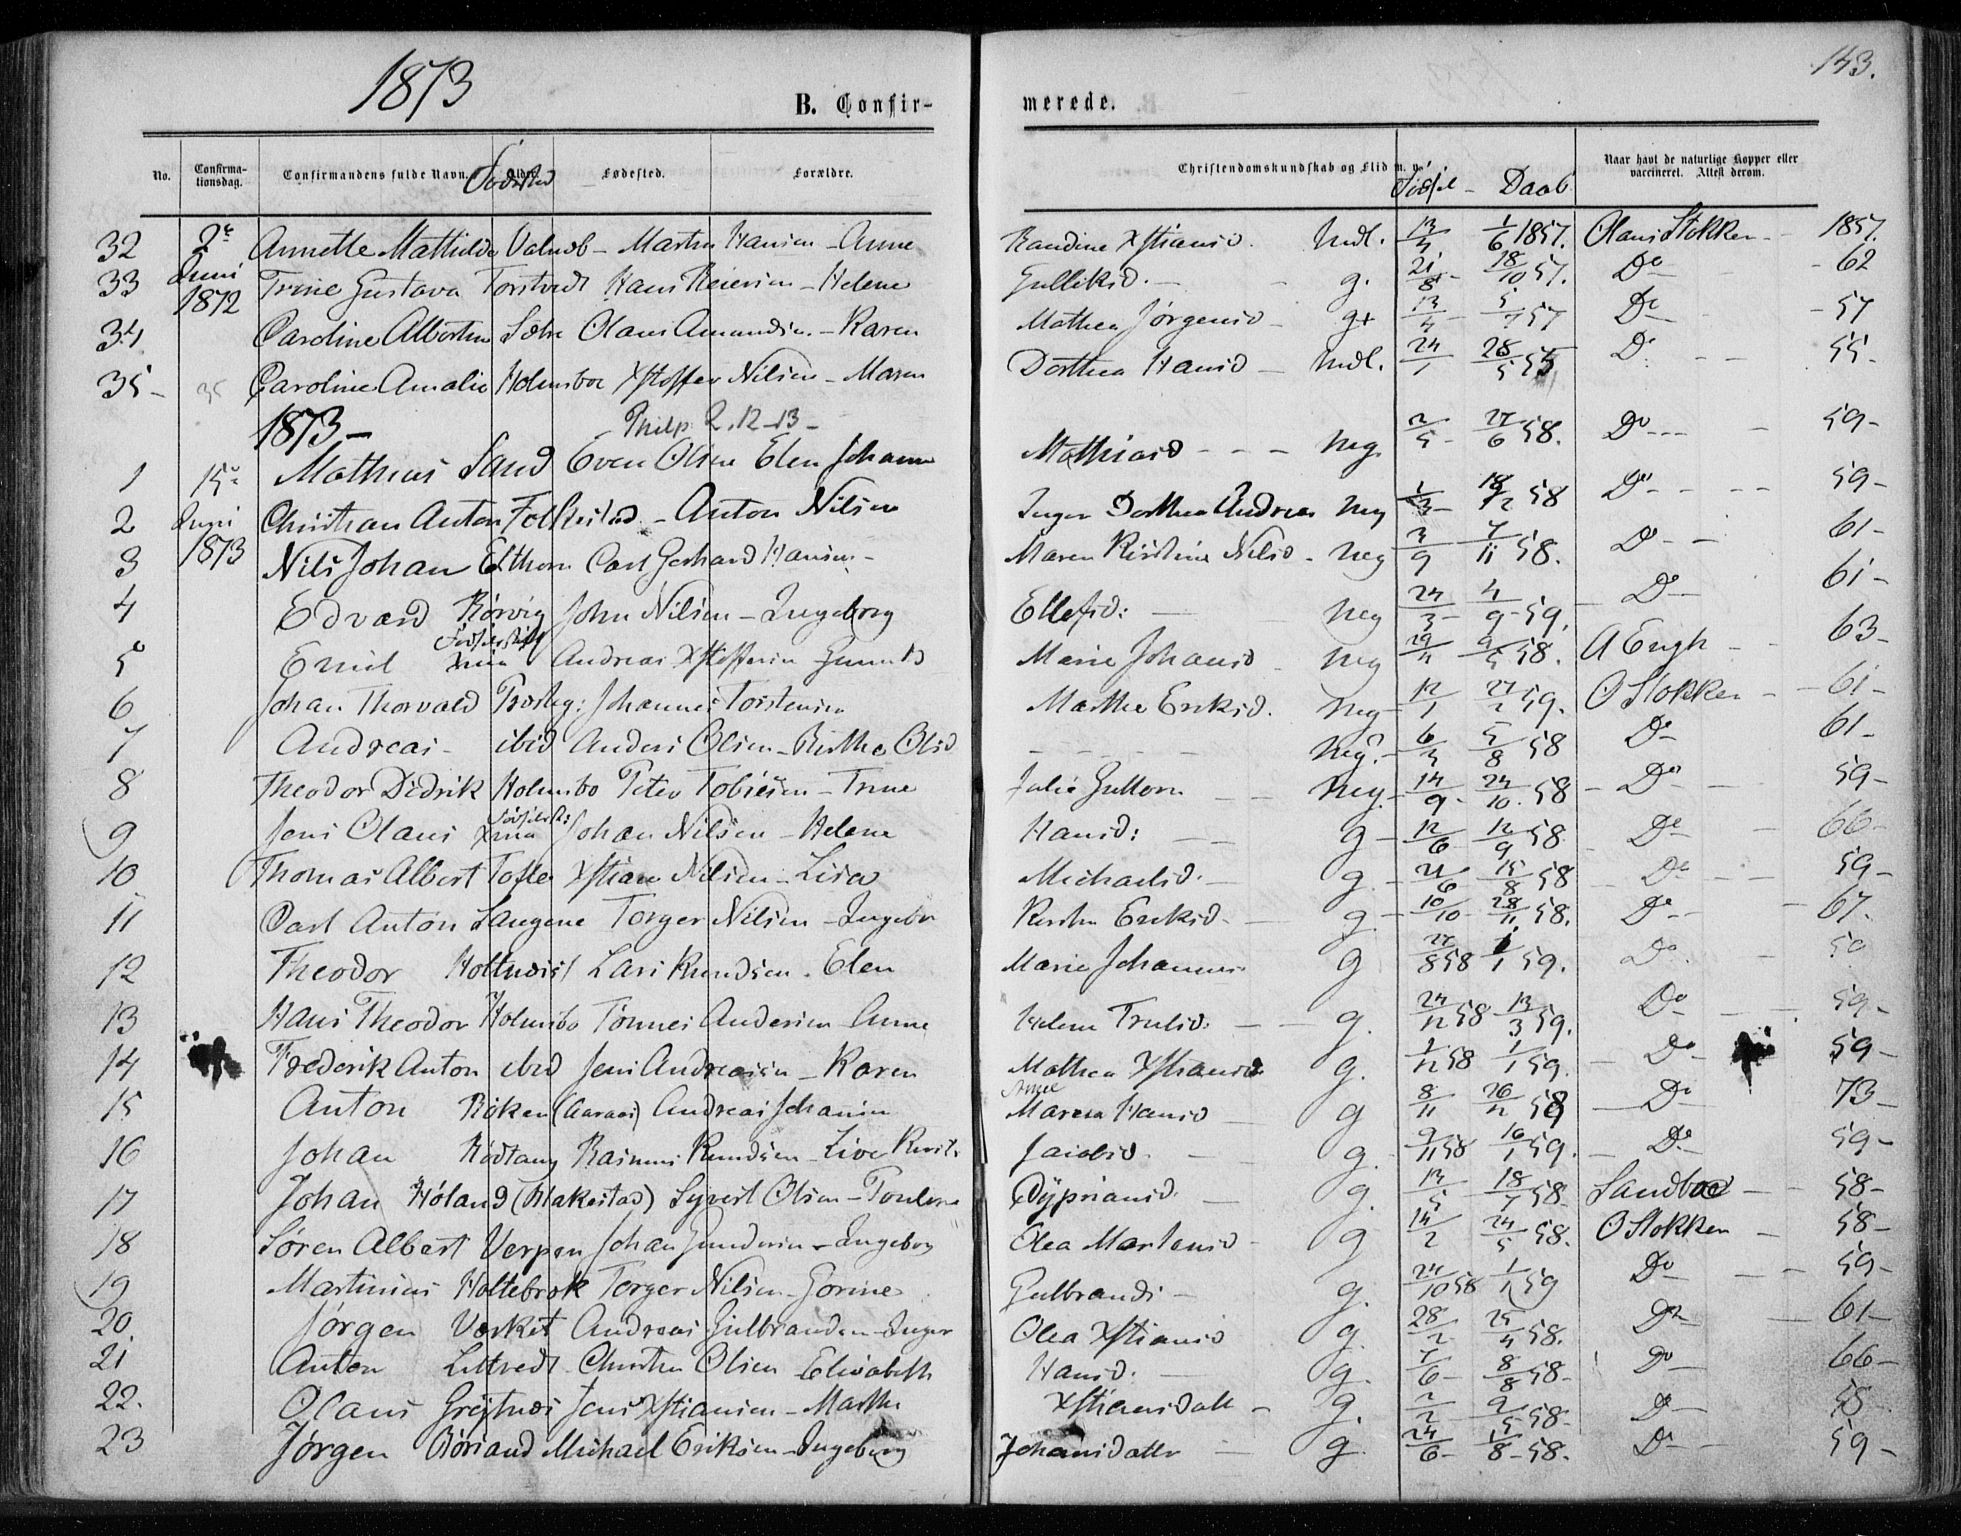 1873
143.
B. Confir-
merede.
No.
Confirma-
tionsdag.
Confirmandens fulde Navn.
Alder.
Fødested
Fødested.
Forældre.
Christendomskundskab og Flid m. v.
Fødsel - Daab
Naar havt de naturlige Kopper eller
vaccineret. Attest derom.
32 2 Annette Mathilde Valnæb - Martin Hansen - Anne Randine Xstiansd. Mdl. 6 1857. Olaus Stokker - 1857.
33 Juni 1872 Trine Gustava Torstvedt Hans Reiersen - Helene Gulliksd. - g. 21/8 - 18/10 57. Do - 62
34 Caroline Albertine Sætre Olaus Amundsen - Karen Mathea Jørgensd - g+ 13/4 5/7 57 Do - 57
35 - Caroline Amalie Holmsboe Xstoffer Nilsen - Maren Dorthea Hansd - Mdl. 24/1 28/5 55 Do - - 55 -
1873 -
Philp. 2, 12-13 -
1 15 Mathias Sand Even Olsen Elen Johanne Mathiasd - - - Meg 2/5 - 27/6 58. Do - - - 59 -
2 Juni Christian Anton Folkestad - Anton Nilsen Inger Dorthea Andrea Meg 58 Do - - - 59 -
3 1873 Nils Johan Elthorn Carl Gerhard Hansen - Maren Kirstine Nilsd - Meg 3/9 7/11 58. Do - - 61 -
4 Edvard Rørvig John Nilsen - Ingeborg Ellefsd: - Meg 24/3 - 4/9 - 59. Do - 61 -
5 Emil Xnia Andreas Xstoffersen Gunnild Marie Johansd - Meg 58. A Engh - 63 -
6 Johan Thorvald Præsteg: Johannes Torstensen Marthe Eriksd. Meg - 12/1 27/2 59. O Stokker - - 61 -
7 Andreas - ibid Anders Olsen - Birthe Olsd - - - - - Meg. - 6/5 5/8 58 Do - 61 -
8 Theodor Didrik Holmsbo Peter Tobiesen - Trine Julie Guttorm - - Meg. - 14/9 - 24/10. 58 - Do - 59 -
9 Jens Olaus Xnia Johan Nilsen - Helene Hansd: - - g - 12/6 12/9 58. - Do - 66 -
10 Thomas Albert Tofte Xstian Nilsen - Lisa Michaelsd. - g. - 21/6 15/8 58 - Do - - 59 -
11 Carl Anton Langene Torger Nilsen - Ingebor Kirstin Eriksd. - g - 10/10 - 28/11 58. Do - - 67.
12 Theodor Holtnæs Lars Knudsen. Elen Marie Johannes g 27/8 58 1/1 59. Do.
13 Hans Theodor Holmsbo Tønnes Andersen Anne Helene Trulsd. - - g. 24/12 58 - 13/3 59. Do - 59 -
14 Frederik Anton ibid Jens Andreassen - Karen Mathea Xstiansd g. 1/12 58 1/1 59. - Do - 59 -
15 Anton Røken (Aaraas) Andreas Johansen Maren Hansd - g 8/11 26/12 58 - Do - 73 -
16 Johan Rødtang Rasmus Knudsen - Live Jacobsd. - g. 9/11 58 16/1 59. - Do - 59 -
17 Johan Høland (Blakestad) Syvert Olsen - Tonlene Cypriansd. - g. 13/5 18/7 58. Sandboe - - 58 -
18 Søren Albert Verpen Johan Gundersen - Ingeborg Olea Martensd - g 14/2 24/5 58. O Stokker - 58 -
19 Martinius Holtebrok Torger Nilsen - Gorine Gulbrands - g. 24/10 58 1/1 59 Do - - - 59 -
20. Jørgen Værket Andreas Gulbrandsen - Inger Olea Xstiansd g. 28/2 25/4 58. Do - 61 -
21 Anton Littvedt Christen Olsen Elisabeth Hansd. - g. 7/6 - 8/8 58 - Do - 66 -
22. Olaus Grejtnæs Jens Xstiansen - Marthe Xstiansdatt - g. 58. Do - 58 -
23 Jørgen Rørsand Michael Eriksen - Ingeborg Johansdattr - g. 24/6 - 15/8 - 58. Do - 59 -